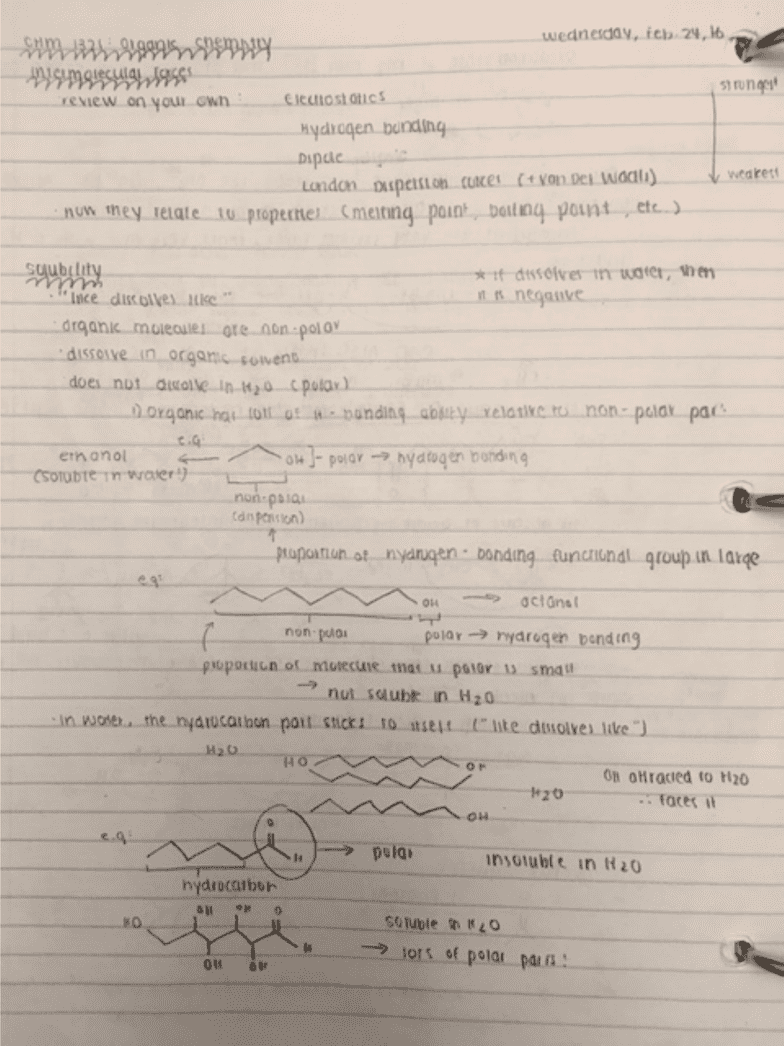 CHM 1321: Organic Chemistry
Wednesday, Feb. 24, 16
Intermolecular Forces
review on your own: Electrostatics
strongest
Hydrogen bonding
Dipole
London Dispersion Forces (+ Van Der Waals)
weakest
· how they relate to properties (melting point, boiling point, etc.)
Solubility
* if dissolves in water, then
it is negative
· "like dissolves like"
· organic molecules are non-polar
· dissolve in organic solvent
does not dissolve in H2O (polar)
organic has lots of H-bonding ability relative to non-polar part
e.g:
ethanol
(soluble in water!)
OH ]- polar → hydrogen bonding
non-polar
(dispersion)
proportion of hydrogen-bonding functional group in large
e.g:
OH → octanol
non-polar
polar → hydrogen bonding
proportion of molecule that is polar is small
→ not soluble in H2O
· In water, the hydrocarbon part sticks to itself ("like dissolves like")
H2O
HO
OH
H2O
OH attracted to H2O
∴ faces it
OH
e.g:
O
H
→ polar
insoluble in H2O
hydrocarbon
HO
OH
OH
O
H
OH
OH
soluble in H2O
→ lots of polar parts!